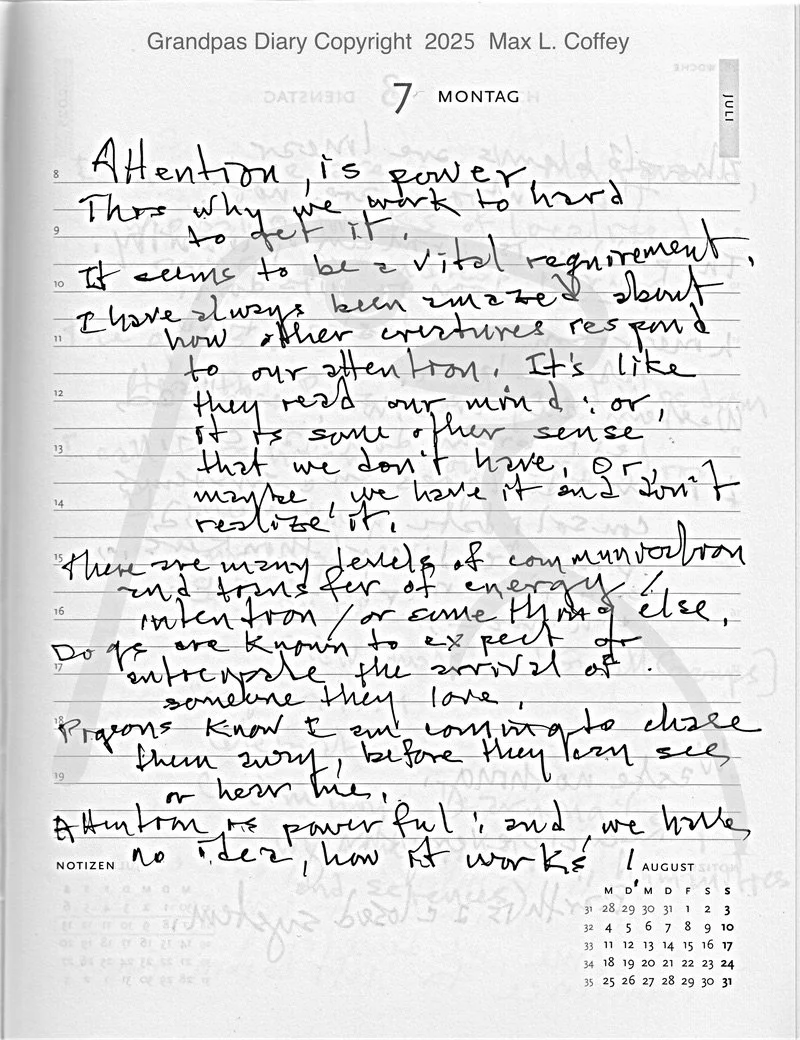 Grandpas Diary Copyright 2025 Max L. Coffey
7 MONTAG
JULI
8
Attention, is power,
Thos why we work to hard
9
to get it.
It seems to be a vital requirement.
10
I have always been amazed about
11
how other creatures respond
to our attention. It's like
12
they read our mind: or,
it is some other sense
13
that we don't have, or,
maybe, we have it and don't
14
realize it.
15
There are many levels of communication
and transfer of energy /
16
intention / or some thing else.
Dogs are known to expect or
17
anticipate the arrival of
someone they love.
18
Pigeons know I am coming to chase
them away, before they can see,
19
or hear me.
Attention is powerful: and, we have,
no idea, how it works!
NOTIZEN
AUGUST
M D M D F S S
31 28 29 30 31 1 2 3
32 4 5 6 7 8 9 10
33 11 12 13 14 15 16 17
34 18 19 20 21 22 23 24
35 25 26 27 28 29 30 31